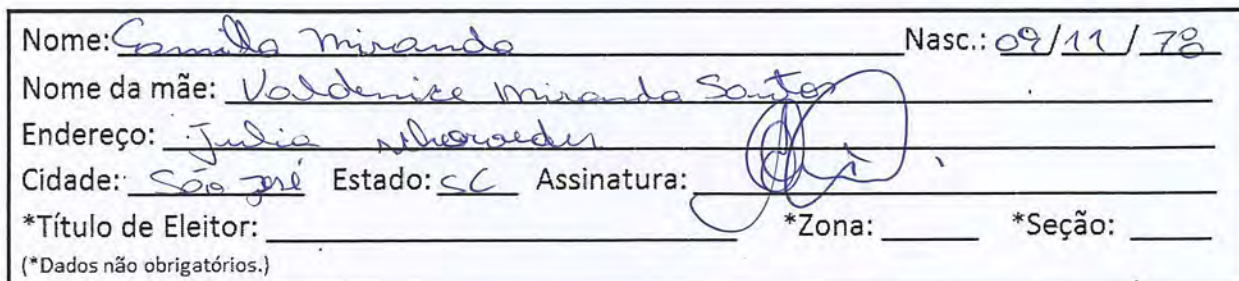 Nome: Camila Miranda Nasc.: 09/11/78
Nome da mãe: Valdenice Miranda Santos
Endereço: Julia
Cidade: São José Estado: SC Assinatura:
*Título de Eleitor: *Zona: *Seção:
(*Dados não obrigatórios.)